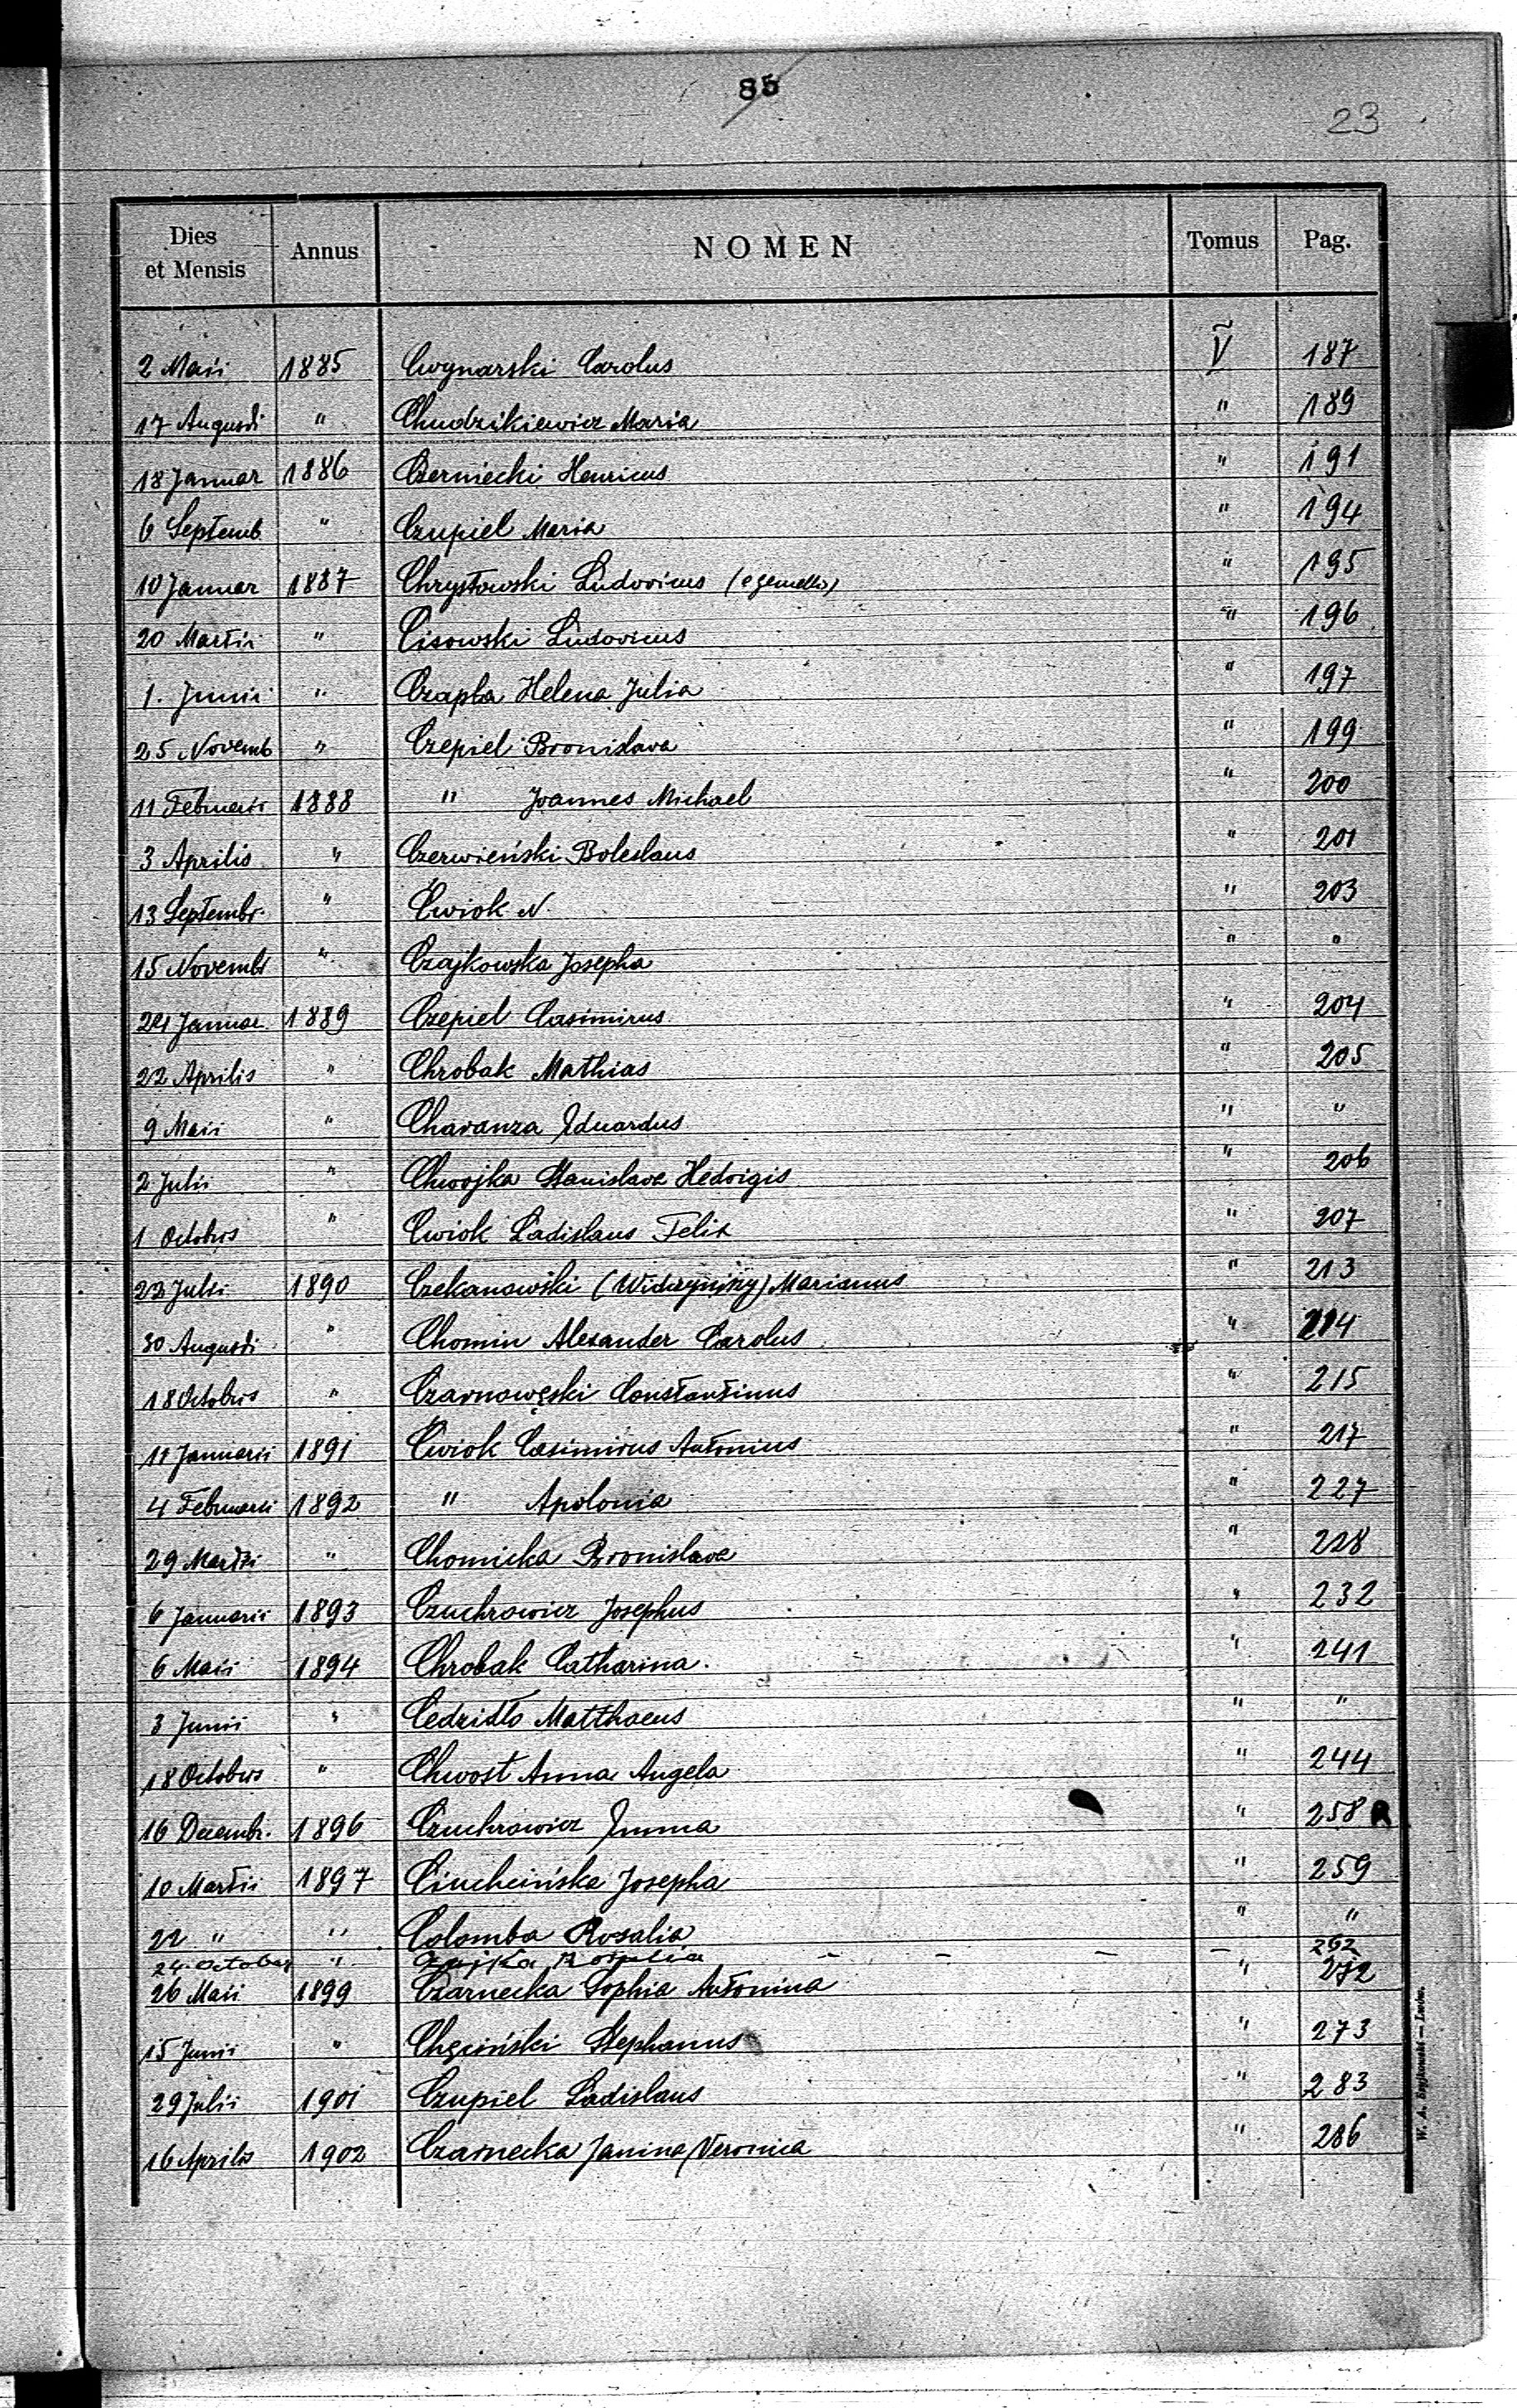 85
23
Dies et Mensis Annus NOMEN Tomus Pag.
2 Maii 1885 Cwynarski Carolus V 187
17 Augusti " Chudzikiewicz Maria " 189
18 Januar 1886 Czerniecki Henricus " 191
6 Septemb " Czupiel Maria " 194
10 Januar 1887 Chrystowski Ludovicus (e gemellis) " 195
20 Martii " Cisowski Ludovicus " 196
1. Junii " Czapka Helena Julia " 197
25 Novemb " Czepiel Bronislava " 199
11 Februarii 1888 " Joannes Michael " 200
3 Aprilis " Czerwieński Boleslaus " 201
13 Septembr. " Ćwiok N. " 203
15 Novembr " Czajkowska Josepha " "
24 Januar 1889 Czepiel Casimirus " 204
22 Aprilis " Chrobak Mathias " 205
9 Maii " Charanza Eduardus " "
2 Julii " Chwojka Stanislava Hedvigis " 206
1 Octobris " Cwiok Ladislaus Felix " 207
23 Julii 1890 Czekanowski Marianus " 213
30 Augusti " Chomin Alexander Carolus " 214
18 Octobris " Czarnowęski Constantinus " 215
11 Januarii 1891 Ćwiok Casimirus Antonius " 217
4 Februarii 1892 " Apolonia " 227
29 Martii " Chomicka Bronislava " 228
6 Januarii 1893 Czuchrowicz Josephus " 232
6 Maii 1894 Chrobak Catharina. " 241
3 Junii " Cedzidło Matthaeus " "
18 Octobris " Chwost Anna Angela " 244
16 Decembr. 1896 Czuchrowicz Emma " 258
10 Martii 1897 Ciucheińska Josepha " 259
22 " " Colomba Rosalia " "
24 October " Czajka Rosalia - - - - 262
26 Maii 1899 Czarnecka Sophia Antonina " 272
15 Junii " Chęciński Stephanus " 273
29 Julii 1901 Czupiel Ladislaus " 283
16 Aprilis 1902 Czarnecka Janina Veronica " 286